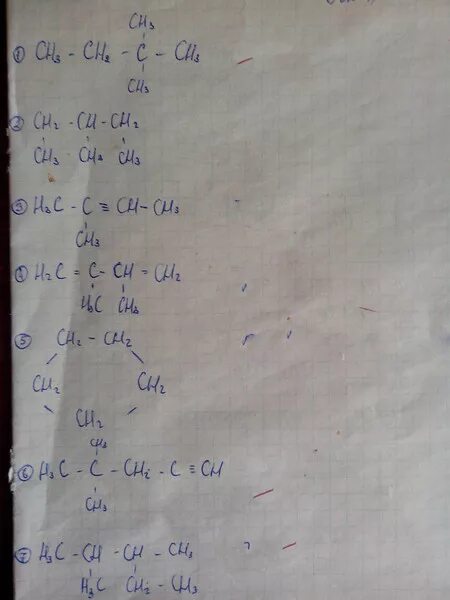 CH3
① CH3 - CH2 - C - CH3
CH3
② CH2 - CH - CH2
CH3 CH3 CH3
③ H3C - C ≡ CH - CH3
CH3
④ H2C = C - CH = CH2
H3C CH3
⑤ CH2 - CH2
CH2 CH2
CH2
CH3
⑥ H3C - C - CH2 - C ≡ CH
CH3
⑦ H3C - CH - CH - CH3
H3C CH2 - CH3